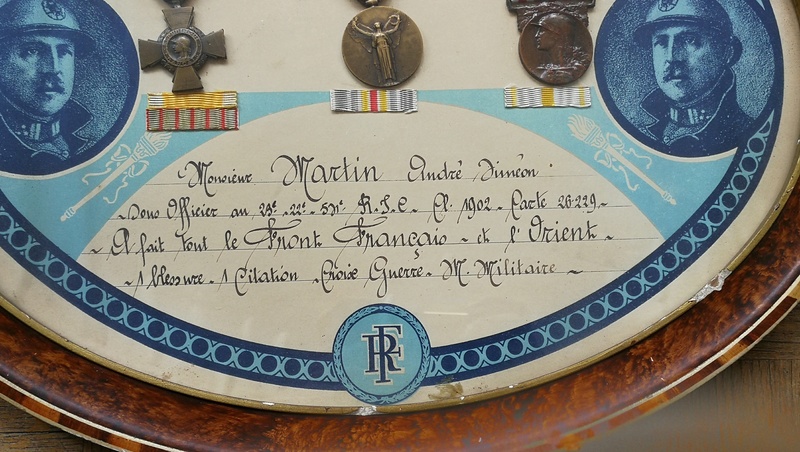 Monsieur Martin André Siméon.
Sous Officier au 23e. 22e. 53e. R.I.C. Cl. 1902. Carte 26.229.
A fait tout le Front Français et l'Orient
1 blessure. 1 Citation. Croix Guerre. M. Militaire
RF